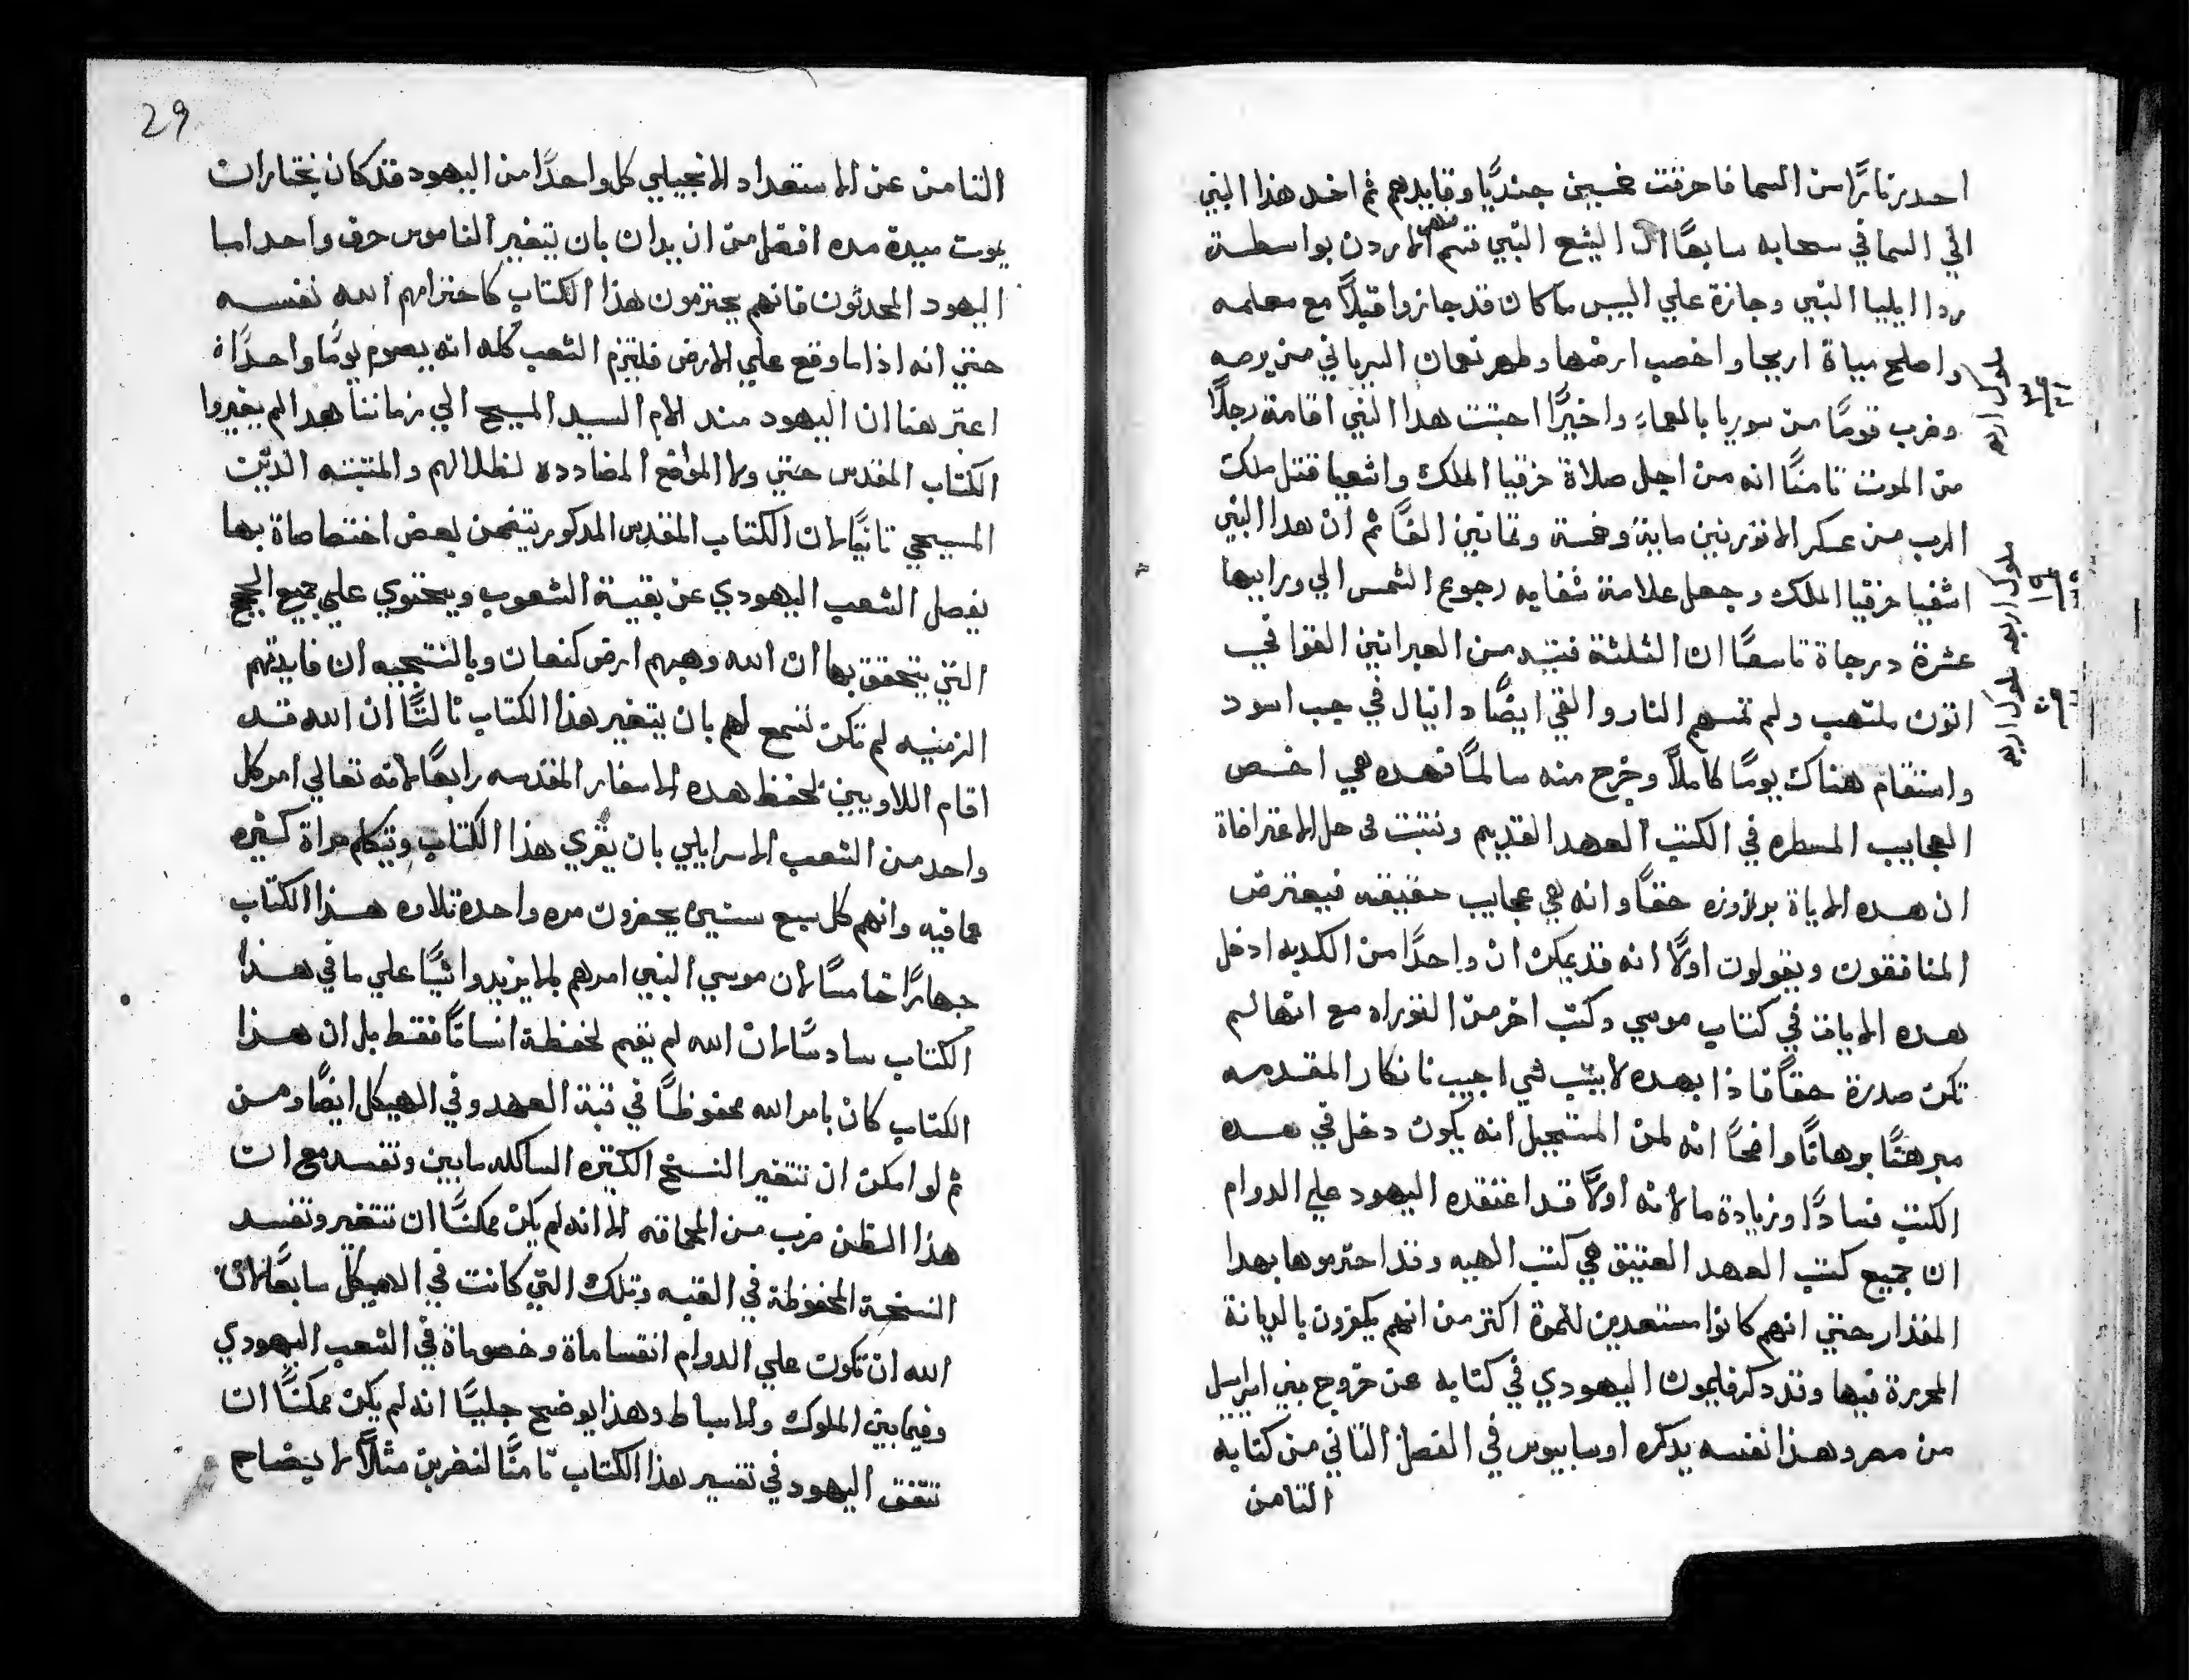 احدر نارًا من السما فاحرقت خمسين جنديًا وقايدهم ثم اخد هذا النبي
الي السما في سحابه سابعًا ان اليشع النبي قسم نهر الاردن بواسطة
ردا ايليا النبي وجازة علي اليبس ما كان قد جازوا قبلًا مع معلمه
واصلح مياة اريحا واخصب ارضها وطهر نعمان السرياني من برصه
وضرب قومًا من سوريا بالعماء واخيرًا احتبت هدا النبي اقامة رجلًا
من الموت تامنًا انه من اجل صلاة حزقيا الملك واشعيا قتل ملكت
الرب من عسكر الاتوريين مايتة وخمسة وتمانين الفًا ثم ان هدا النبي
اشفيا حزقيا الملك وجعل علامة شفايه رجوع الشمس الي ورابيها
عشرة درجاة تاسعًا ان الثلثة فتيه من العبرانيين القوا في
اتون ملتهب ولم تمسهم النار والقي ايضًا دانيال في جب اسود
واستقام هناك يومًا كاملًا وخرج منه سالمًا فهده هي اخص
العجايب المسطره في الكتب العهد القديم ونتبت في حل الاعتراضاة
ان هده الاياة بولزوزه حقًا وانه هي عجايب حقيقه فيعترض
المنافقون ويقولون اولًا انه قد يمكن ان واحدًا من الكدبه ادخل
هده الايات في كتاب موسي وكتب اخر من التوراه مع انها لم
تكن صدرة حقًا فاذا بهده لا يتب شي اجيب نانكار المقدمه
مبرهنًا برهانًا واضحًا انه لمن المستحيل انه يكون دخل في هده
الكتب فسادًا وزيادة ما لانه اولًا قد اعتقده اليهود علي الدوام
ان جميع كتب العهد العتيق هي كتب الهيه وقد احترموها بهدا
المقدار حتي انهم كانوا مستعدين للموة اكتر من انهم يكفرون بالديانة
المحررة فيها وقد دكر فليمون اليهودي في كتابه عن خروج بني اسرايل
من مصر وهذا نفسه يدكره اوسابيوس في الفصل التاني من كتابه
التامن
ملوك اربعه
ملوك اربعه
ملوك اربعه
29
التامن عن الاستعداد الانجيلي كل واحدًا من اليهود قد كان يختار ان
يموت ميدة مده افضل من ان يدان بان يتغير الناموس حرف واحد اما
اليهود المحدثون فانهم يحترمون هذا الكتاب كاحترامهم الله نفسه
حتي انه اذا ما وقع علي الارض فليتزم الشعب كله انه يصوم يومًا واحدًا
اعتبر هنا ان اليهود مند الام السيد المسيح الي زماننا هدا لم يغيروا
الكتاب المقدس حتي ولا المواقع المضادده لضلالهم والمتبته الدين
المسيحي تانيًا لان الكتاب المقدس المدكور يتضمن بعض اختصاصاة بها
يفصل الشعب اليهودي عن بقية الشعوب ويحتوي علي جميع الحجج
التي يتحقق بها ان الله وهبهم ارض كنعان وبالنتيجيه ان فايدتهم
الزمنيه لم تكن تسمح لهم بان يتغير هذا الكتاب تالتًا ان الله قد
اقام اللاويين لحفظ هده الاسفار المقدسه رابعًا لانه تعالي امر كل
واحد من الشعب الاسرايلي بان يقري هذا الكتاب ويتكلم مراة كثيره
عما فيه وانهم كل سبع سنين يحضرون مره واحده تلاوه هذا الكتاب
جهارًا خامسًا لان موسي النبي امرهم بلا يزيدوا شيًا علي ما في هذا
الكتاب سادسًا لان الله لم يقم لحفظة انسانًا فقط بل ان هذا
الكتاب كان بامر الله محفوظًا في قبة العهد وفي الهيكل ايضًا ومن
ثم لو امكن ان تتغير النسخ الكتيره السالكه ما بين وتفسد مع ان
هذا الظن ضرب من المحاقه الا انه لم يكن ممكنًا ان تتغير وتفسد
النسخة المحفوظة في القبه وتلك التي كانت في الهيكل سابعًا لان
الله ان تكون علي الدوام انقساماة وخصوماة في الشعب اليهودي
وفيما بين الملوك والاسباط وهذا يوضح جليًا انه لم يكن ممكنًا ان
تتفق اليهود في تفسير هذا الكتاب تامنًا لنفرين مثلًا لايضاح